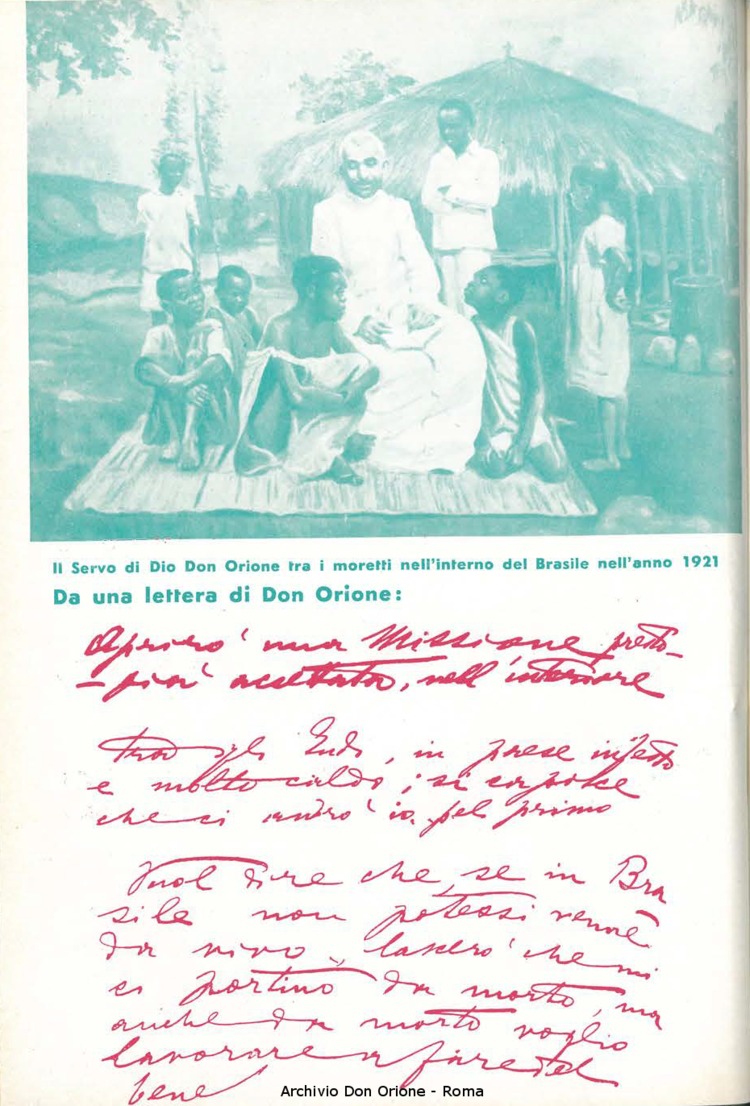 Il Servo di Dio Don Orione tra i moretti nell'interno del Brasile nell'anno 1921
Da una lettera di Don Orione:
Aprirò una Missione presto
– già accettata, nell'interiore
tra gli Indi, in paese infetto
e molto caldo; si capisce
che ci andrò io pel primo
Vuol dire che, se in Bra
sile non potessi venire
da vivo, lascerò che mi
ci portino da morto, ma
anche da morto voglio
lavorare a fare del
bene
Archivio Don Orione - Roma